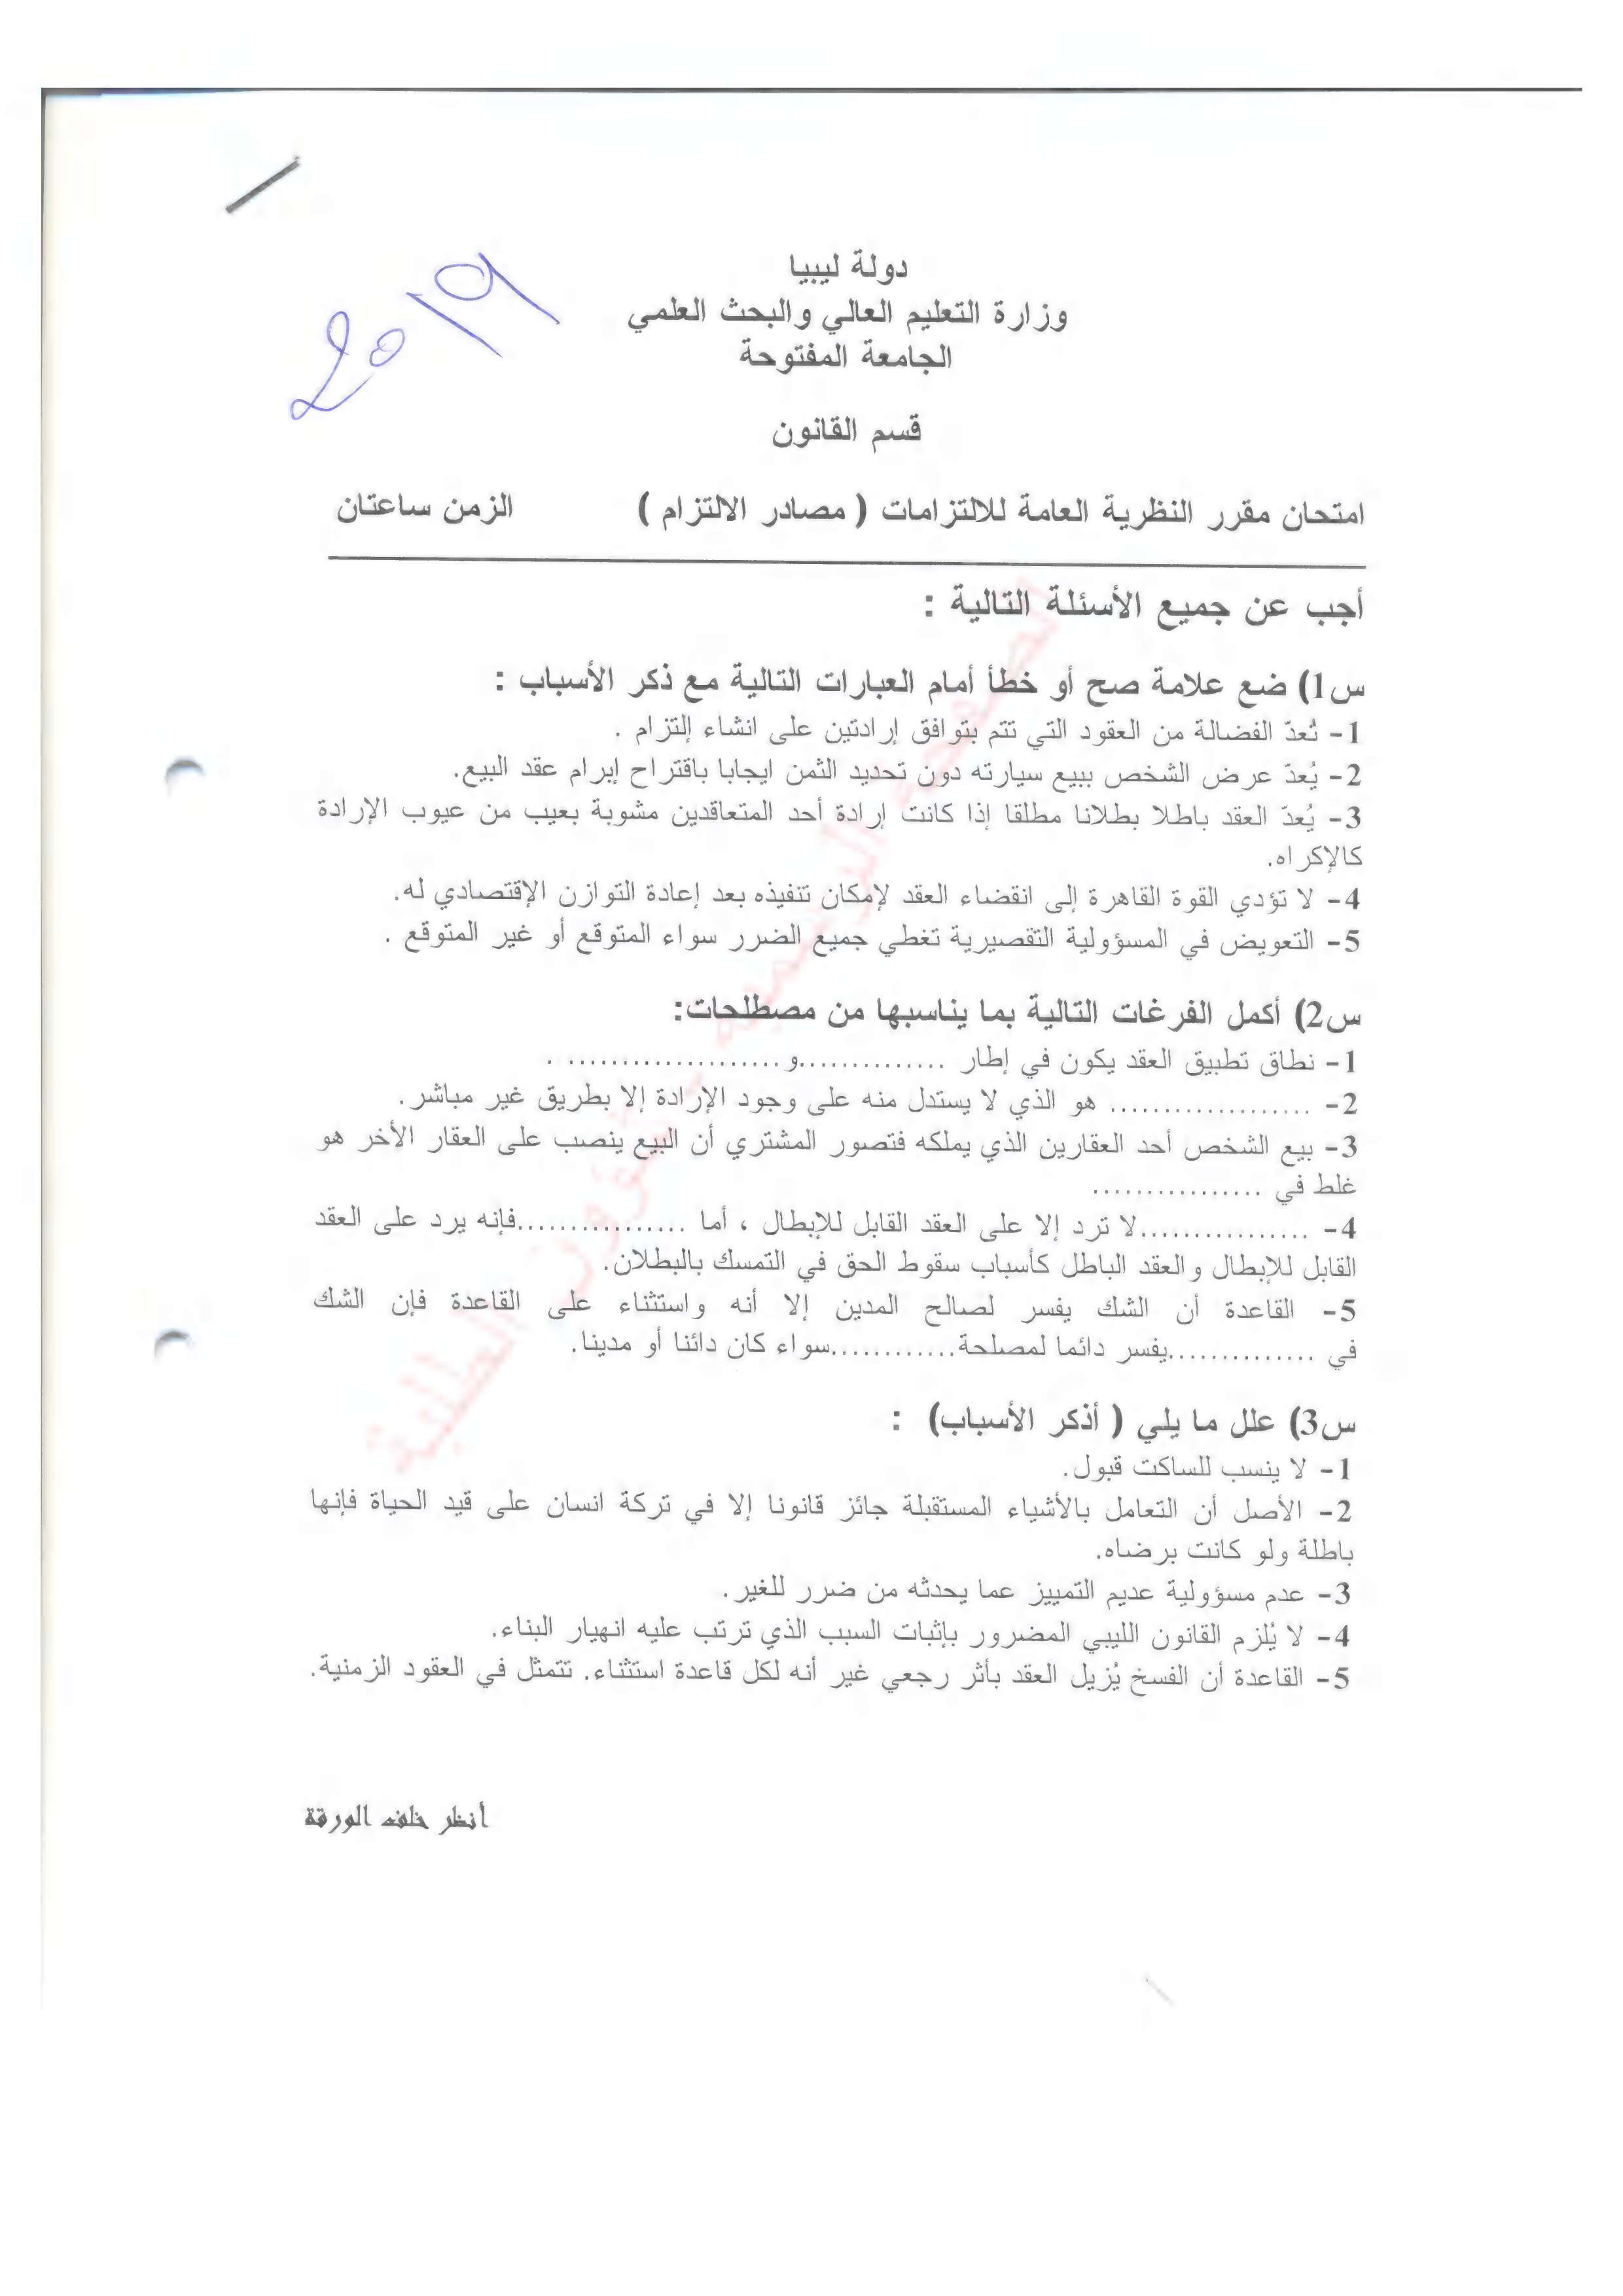 2019
دولة ليبيا
وزارة التعليم العالي والبحث العلمي
الجامعة المفتوحة
قسم القانون
امتحان مقرر النظرية العامة للالتزامات ( مصادر الالتزام ) الزمن ساعتان
أجب عن جميع الأسئلة التالية :
س1) ضع علامة صح أو خطأ أمام العبارات التالية مع ذكر الأسباب :
1- تُعدّ الفضالة من العقود التي تتم بتوافق إرادتين على انشاء إلتزام .
2- يُعدّ عرض الشخص ببيع سيارته دون تحديد الثمن ايجابا باقتراح إبرام عقد البيع.
3- يُعدّ العقد باطلا بطلانا مطلقا إذا كانت إرادة أحد المتعاقدين مشوبة بعيب من عيوب الإرادة
كالإكراه.
4- لا تؤدي القوة القاهرة إلى انقضاء العقد لإمكان تنفيذه بعد إعادة التوازن الإقتصادي له.
5- التعويض في المسؤولية التقصيرية تغطي جميع الضرر سواء المتوقع أو غير المتوقع .
س2) أكمل الفرغات التالية بما يناسبها من مصطلحات:
1- نطاق تطبيق العقد يكون في إطار ..............و.................... .
2- ................... هو الذي لا يستدل منه على وجود الإرادة إلا بطريق غير مباشر.
3- بيع الشخص أحد العقارين الذي يملكه فتصور المشتري أن البيع ينصب على العقار الأخر هو
غلط في ................
4- ................لا ترد إلا على العقد القابل للإبطال ، أما ................فإنه يرد على العقد
القابل للإبطال والعقد الباطل كأسباب سقوط الحق في التمسك بالبطلان.
5- القاعدة أن الشك يفسر لصالح المدين إلا أنه واستثناء على القاعدة فإن الشك
في ..............يفسر دائما لمصلحة............سواء كان دائنا أو مدينا.
س3) علل ما يلي ( أذكر الأسباب) :
1- لا ينسب للساكت قبول.
2- الأصل أن التعامل بالأشياء المستقبلة جائز قانونا إلا في تركة انسان على قيد الحياة فإنها
باطلة ولو كانت برضاه.
3- عدم مسؤولية عديم التمييز عما يحدثه من ضرر للغير.
4- لا يُلزم القانون الليبي المضرور بإثبات السبب الذي ترتب عليه انهيار البناء.
5- القاعدة أن الفسخ يُزيل العقد بأثر رجعي غير أنه لكل قاعدة استثناء. تتمثل في العقود الزمنية.
أنظر خلف الورقة
الصفحة الرسمية شؤون الطلبة